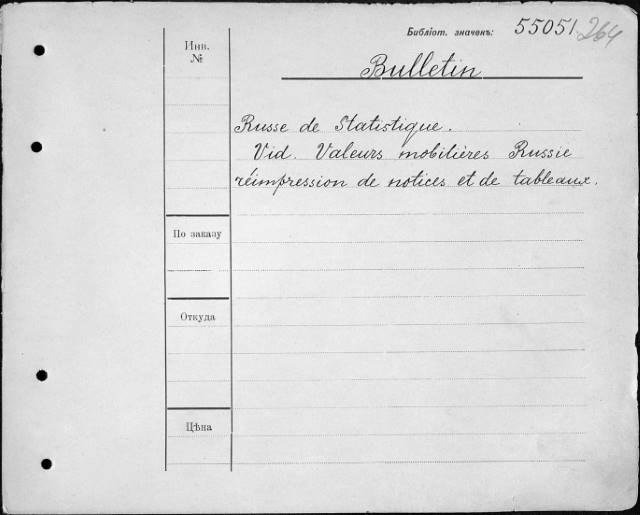 Библіот. значекъ: 55051 264
Инв.
№
Bulletin
Russe de Statistique.
Vid. Valeurs mobilières Russie
réimpression de notices et de tableaux.
По заказу
Откуда
Цѣна